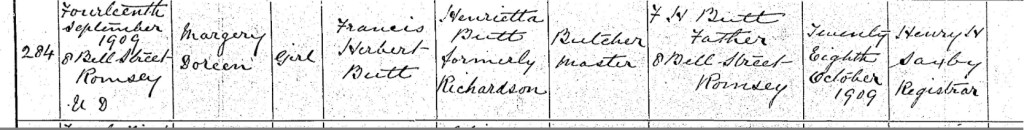 284
Fourteenth
September
1909
8 Bell Street
Romsey
U D
Margery
Doreen
Girl
Francis
Herbert
Butt
Henrietta
Butt
formerly
Richardson
Butcher
Master
F H Butt
Father
8 Bell Street
Romsey
Twenty
Eighth
October
1909
Henry H
Saxby
Registrar